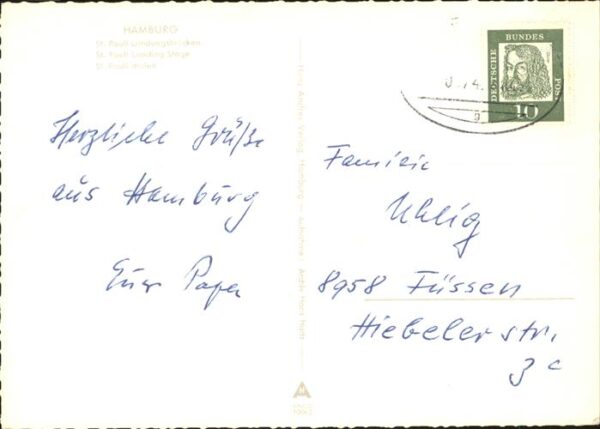 HAMBURG
St. Pauli Landungsbrücken
St. Pauli Landing Stage
St. Pauli
Herzliche Grüße
aus Hamburg
Euer Papa
Hans Andres Verlag, Hamburg
DEUTSCHE
BUNDES
POST
10
Familie
Uhlig
8958 Füssen
Hiebelerstr.
3 c